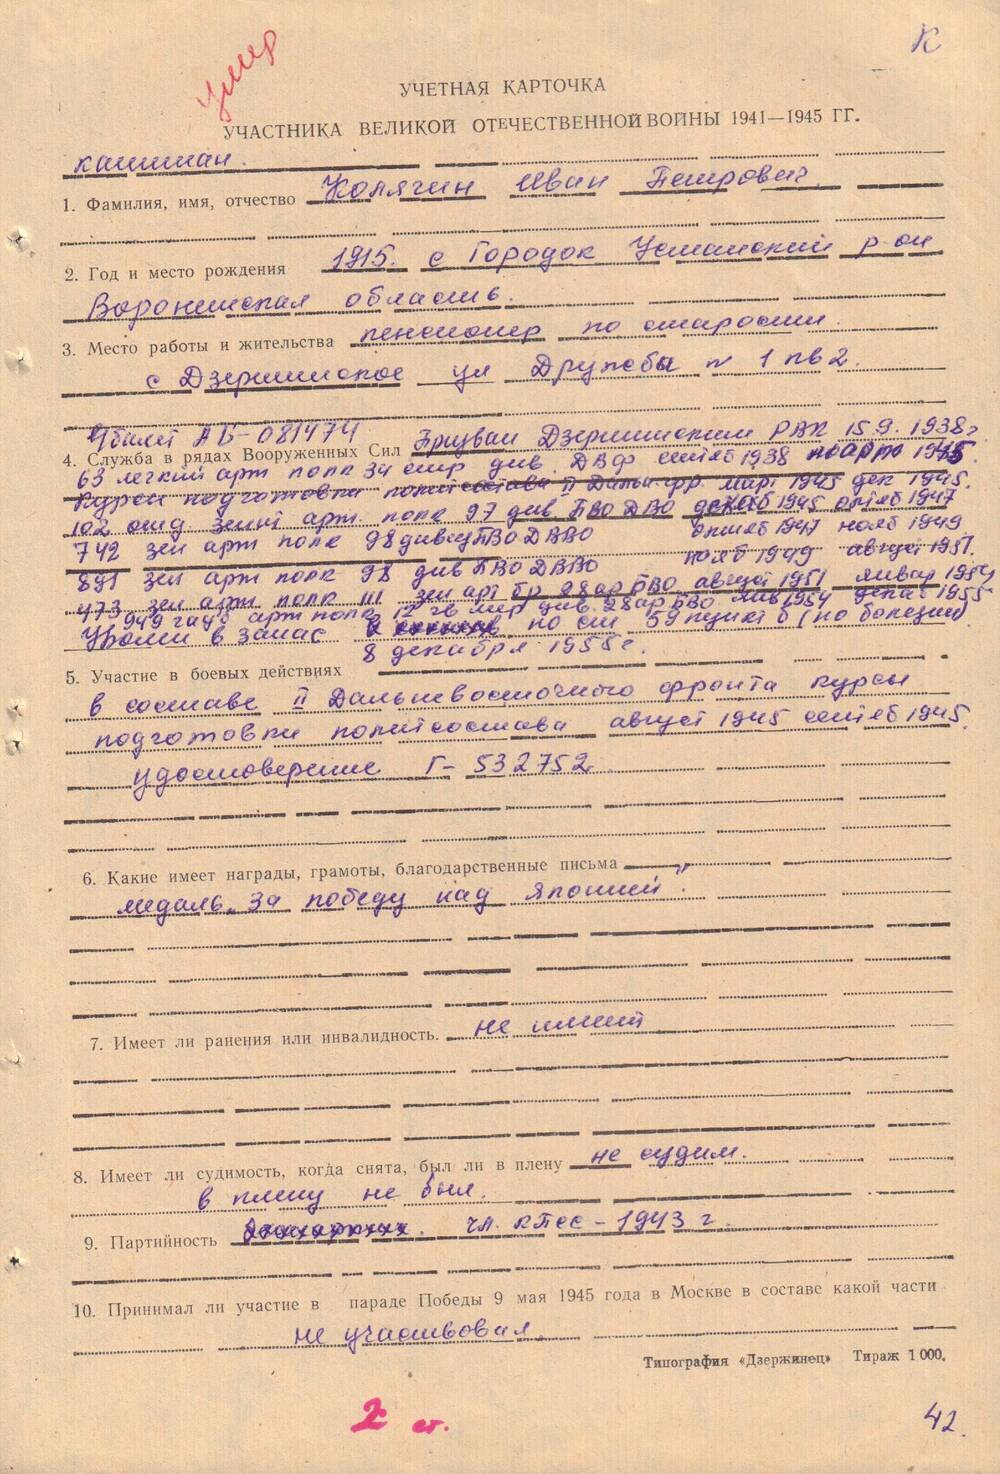 К
умер
УЧЕТНАЯ КАРТОЧКА
УЧАСТНИКА ВЕЛИКОЙ ОТЕЧЕСТВЕННОЙ ВОЙНЫ 1941—1945 ГГ.
капитан.
1. Фамилия, имя, отчество Колягин Иван Петрович
2. Год и место рождения 1915. с Городок Усманский р-он
Воронежская область.
3. Место работы и жительства пенсионер по старости.
с Дзержинское ул Дружбы № 1 кв 2.
Ч билет АБ-081474
4. Служба в рядах Вооруженных Сил Призван Дзержинским РВК 15.9.1938г
63 легкий арт полк 34 стр див. ДВФ сентяб 1938 по март 1945
Курсы подготовки политсостава II Даль фр. март 1945 дек 1945.
102 отд зенит арт. полк 97 див ПВО ДВО 1945 октяб 1947
742 зен арт полк 98 див ПВО ДВО октяб 1947 нояб 1949
891 зен арт полк 98 див ПВО ДВО нояб 1949 август 1951.
473 зен арт полк III зен арт бр 28 ар БВО август 1951 январ 1954
949 арт полк 12 гв див. 28 ар БВО янв 1954 декаб 1955
Уволен в запас по ст 59 пункт б (по болезни)
8 декабря 1955г.
5. Участие в боевых действиях
в составе II Дальневосточного фронта курсы
подготовки политсостава август 1945 сентяб 1945.
удостоверение Г-532752
6. Какие имеет награды, грамоты, благодарственные письма
медаль „За победу над Японией"
7. Имеет ли ранения или инвалидность. не имеет
8. Имеет ли судимость, когда снята, был ли в плену не судим.
в плену не был.
9. Партийность чл. КПСС - 1943 г.
10. Принимал ли участие в параде Победы 9 мая 1945 года в Москве в составе какой части
не участвовал
Типография «Дзержинец» Тираж 1 000.
2 ст.
42.